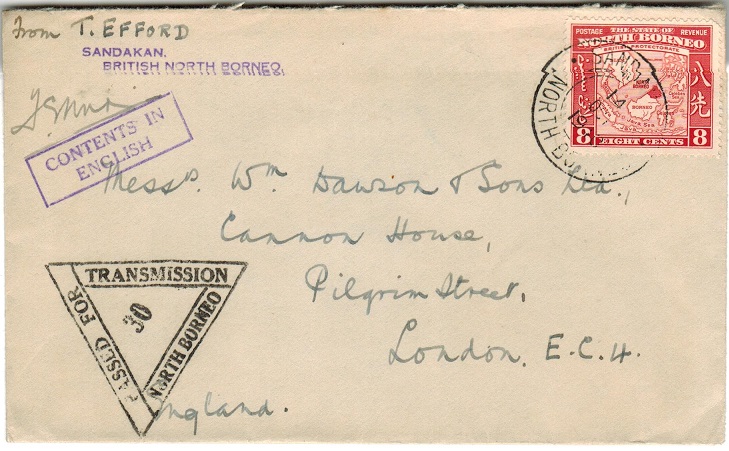 From T. EFFORD
SANDAKAN,
BRITISH NORTH BORNEO.
CONTENTS IN
ENGLISH
POSTAGE THE STATE OF REVENUE
NORTH BORNEO
BRITISH PROTECTORATE
八先
BORNEO
Java Sea
8 EIGHT CENTS 8
SANDA
14
NORTH BO
Messrs. Wm Dawson & Sons Ltd.,
Cannon House,
Pilgrim Street,
London, E.C.4.
England.
PASSED FOR
TRANSMISSION
30
NORTH BORNEO